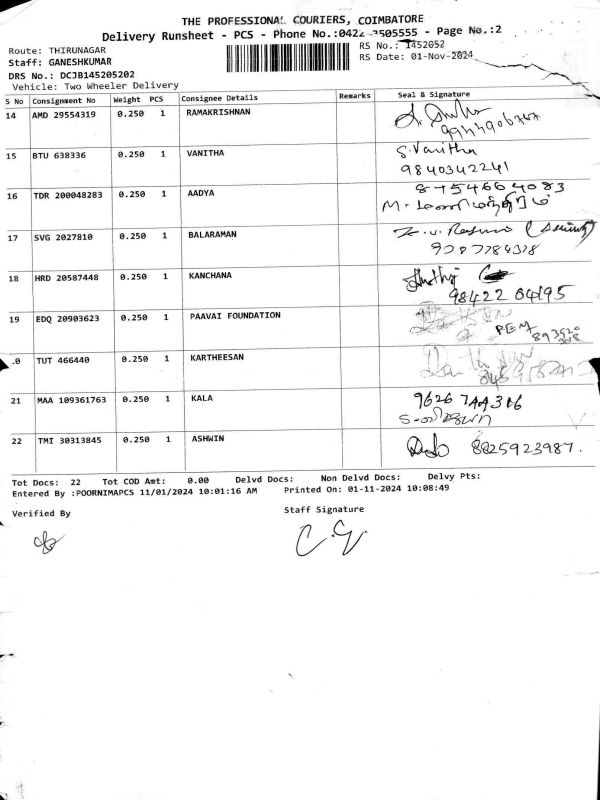 THE PROFESSIONAL COURIERS, COIMBATORE
Delivery Runsheet - PCS - Phone No.:0422 3505555 - Page No.:2
Route: THIRUNAGAR RS No.: 1452052
Staff: GANESHKUMAR RS Date: 01-Nov-2024
DRS No.: DCJB145205202
Vehicle: Two Wheeler Delivery
S No Consignment No Weight PCS Consignee Details Remarks Seal & Signature
14 AMD 29554319 0.250 1 RAMAKRISHNAN
15 BTU 638336 0.250 1 VANITHA S.Vanitha
9840342241
16 TDR 200048283 0.250 1 AADYA 8754664083
17 SVG 2027810 0.250 1 BALARAMAN
18 HRD 20587448 0.250 1 KANCHANA
98422 64195
19 EDQ 20903623 0.250 1 PAAVAI FOUNDATION
.0 TUT 466440 0.250 1 KARTHEESAN
21 MAA 109361763 0.250 1 KALA 9626744316
22 TMI 30313845 0.250 1 ASHWIN 8825923987.
Tot Docs: 22 Tot COD Amt: 0.00 Delvd Docs: Non Delvd Docs: Delvy Pts:
Entered By :POORNIMAPCS 11/01/2024 10:01:16 AM Printed On: 01-11-2024 10:08:49
Verified By Staff Signature